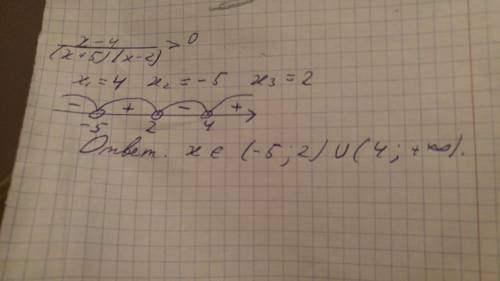 x-4
(x+5)(x-2) > 0
x₁=4 x₂=-5 x₃=2
- + - +
-5 2 4
Ответ. x ∈ (-5; 2) ∪ (4; +∞).